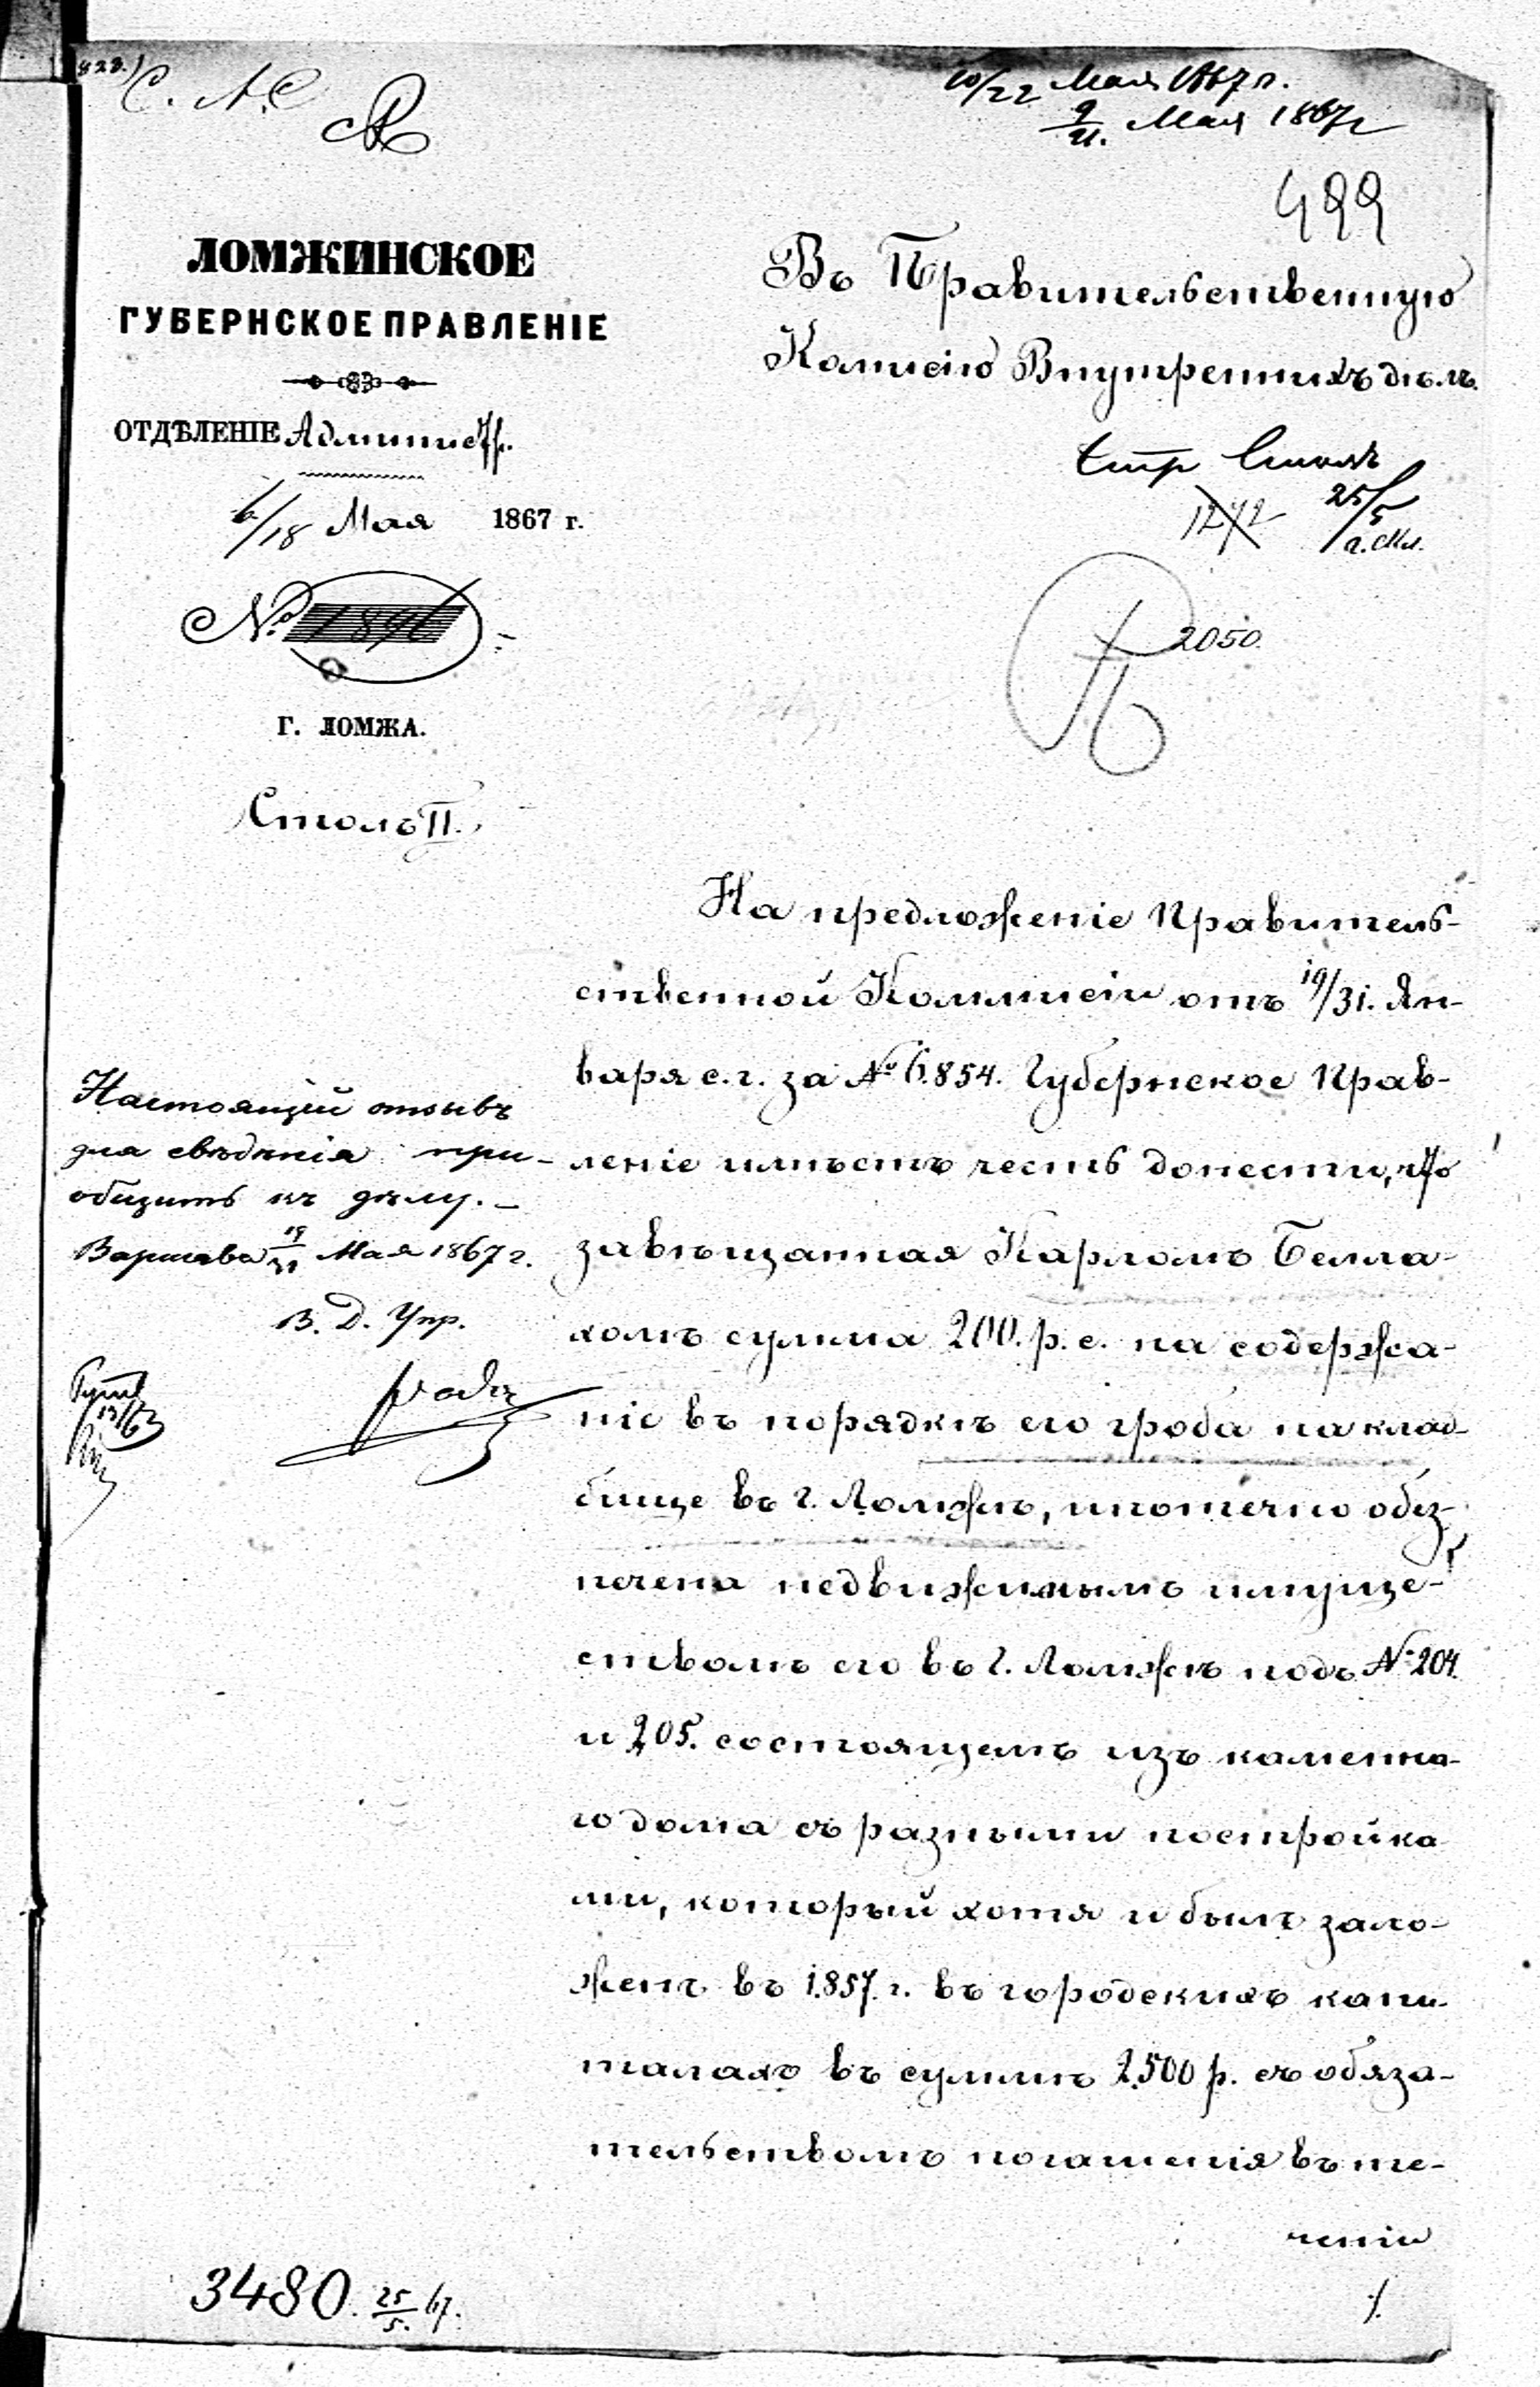 С. А. С
10/22 Мая 1867 г.
9/21. Мая 1867 г
499
ЛОМЖИНСКОЕ
ГУБЕРНСКОЕ ПРАВЛЕНІЕ
ОТДѢЛЕНІЕ Администр.
6/18 Мая 1867 г.
№
Г. ЛОМЖА.
Столъ II.
Въ Правительственную
Комисію Внутреннихъ дѣлъ.
25/5
2050.
На предложеніе Правитель-
ственной Коммисіи отъ 19/31. Ян-
варя с. г. за № 6.854. Губернское Прав-
леніе имѣетъ честь донести, что
завѣщанная Карломъ Белла-
хомъ сумма 200. р. с. на содержа-
ніе въ порядкѣ его гроба на клад-
бище въ г. Ломжѣ, ипотечно обез-
печена недвижимымъ имуще-
ствомъ его въ г. Ломжѣ подъ № 204.
и 205. состоящемъ изъ каменна-
го дома съ разными постройка-
ми, который хотя и былъ зало-
женъ въ 1.857. г. въ городскихъ капи-
талахъ въ суммѣ 2.500 р. съ обяза-
тельствомъ погашенія въ те-
ченіи
./.
Настоящій отзывъ
для свѣдѣнія прі-
общить къ дѣлу. –
Варшава 19/31 Мая 1867 г.
В. Д. Упр.
3480. 25/5. 67.